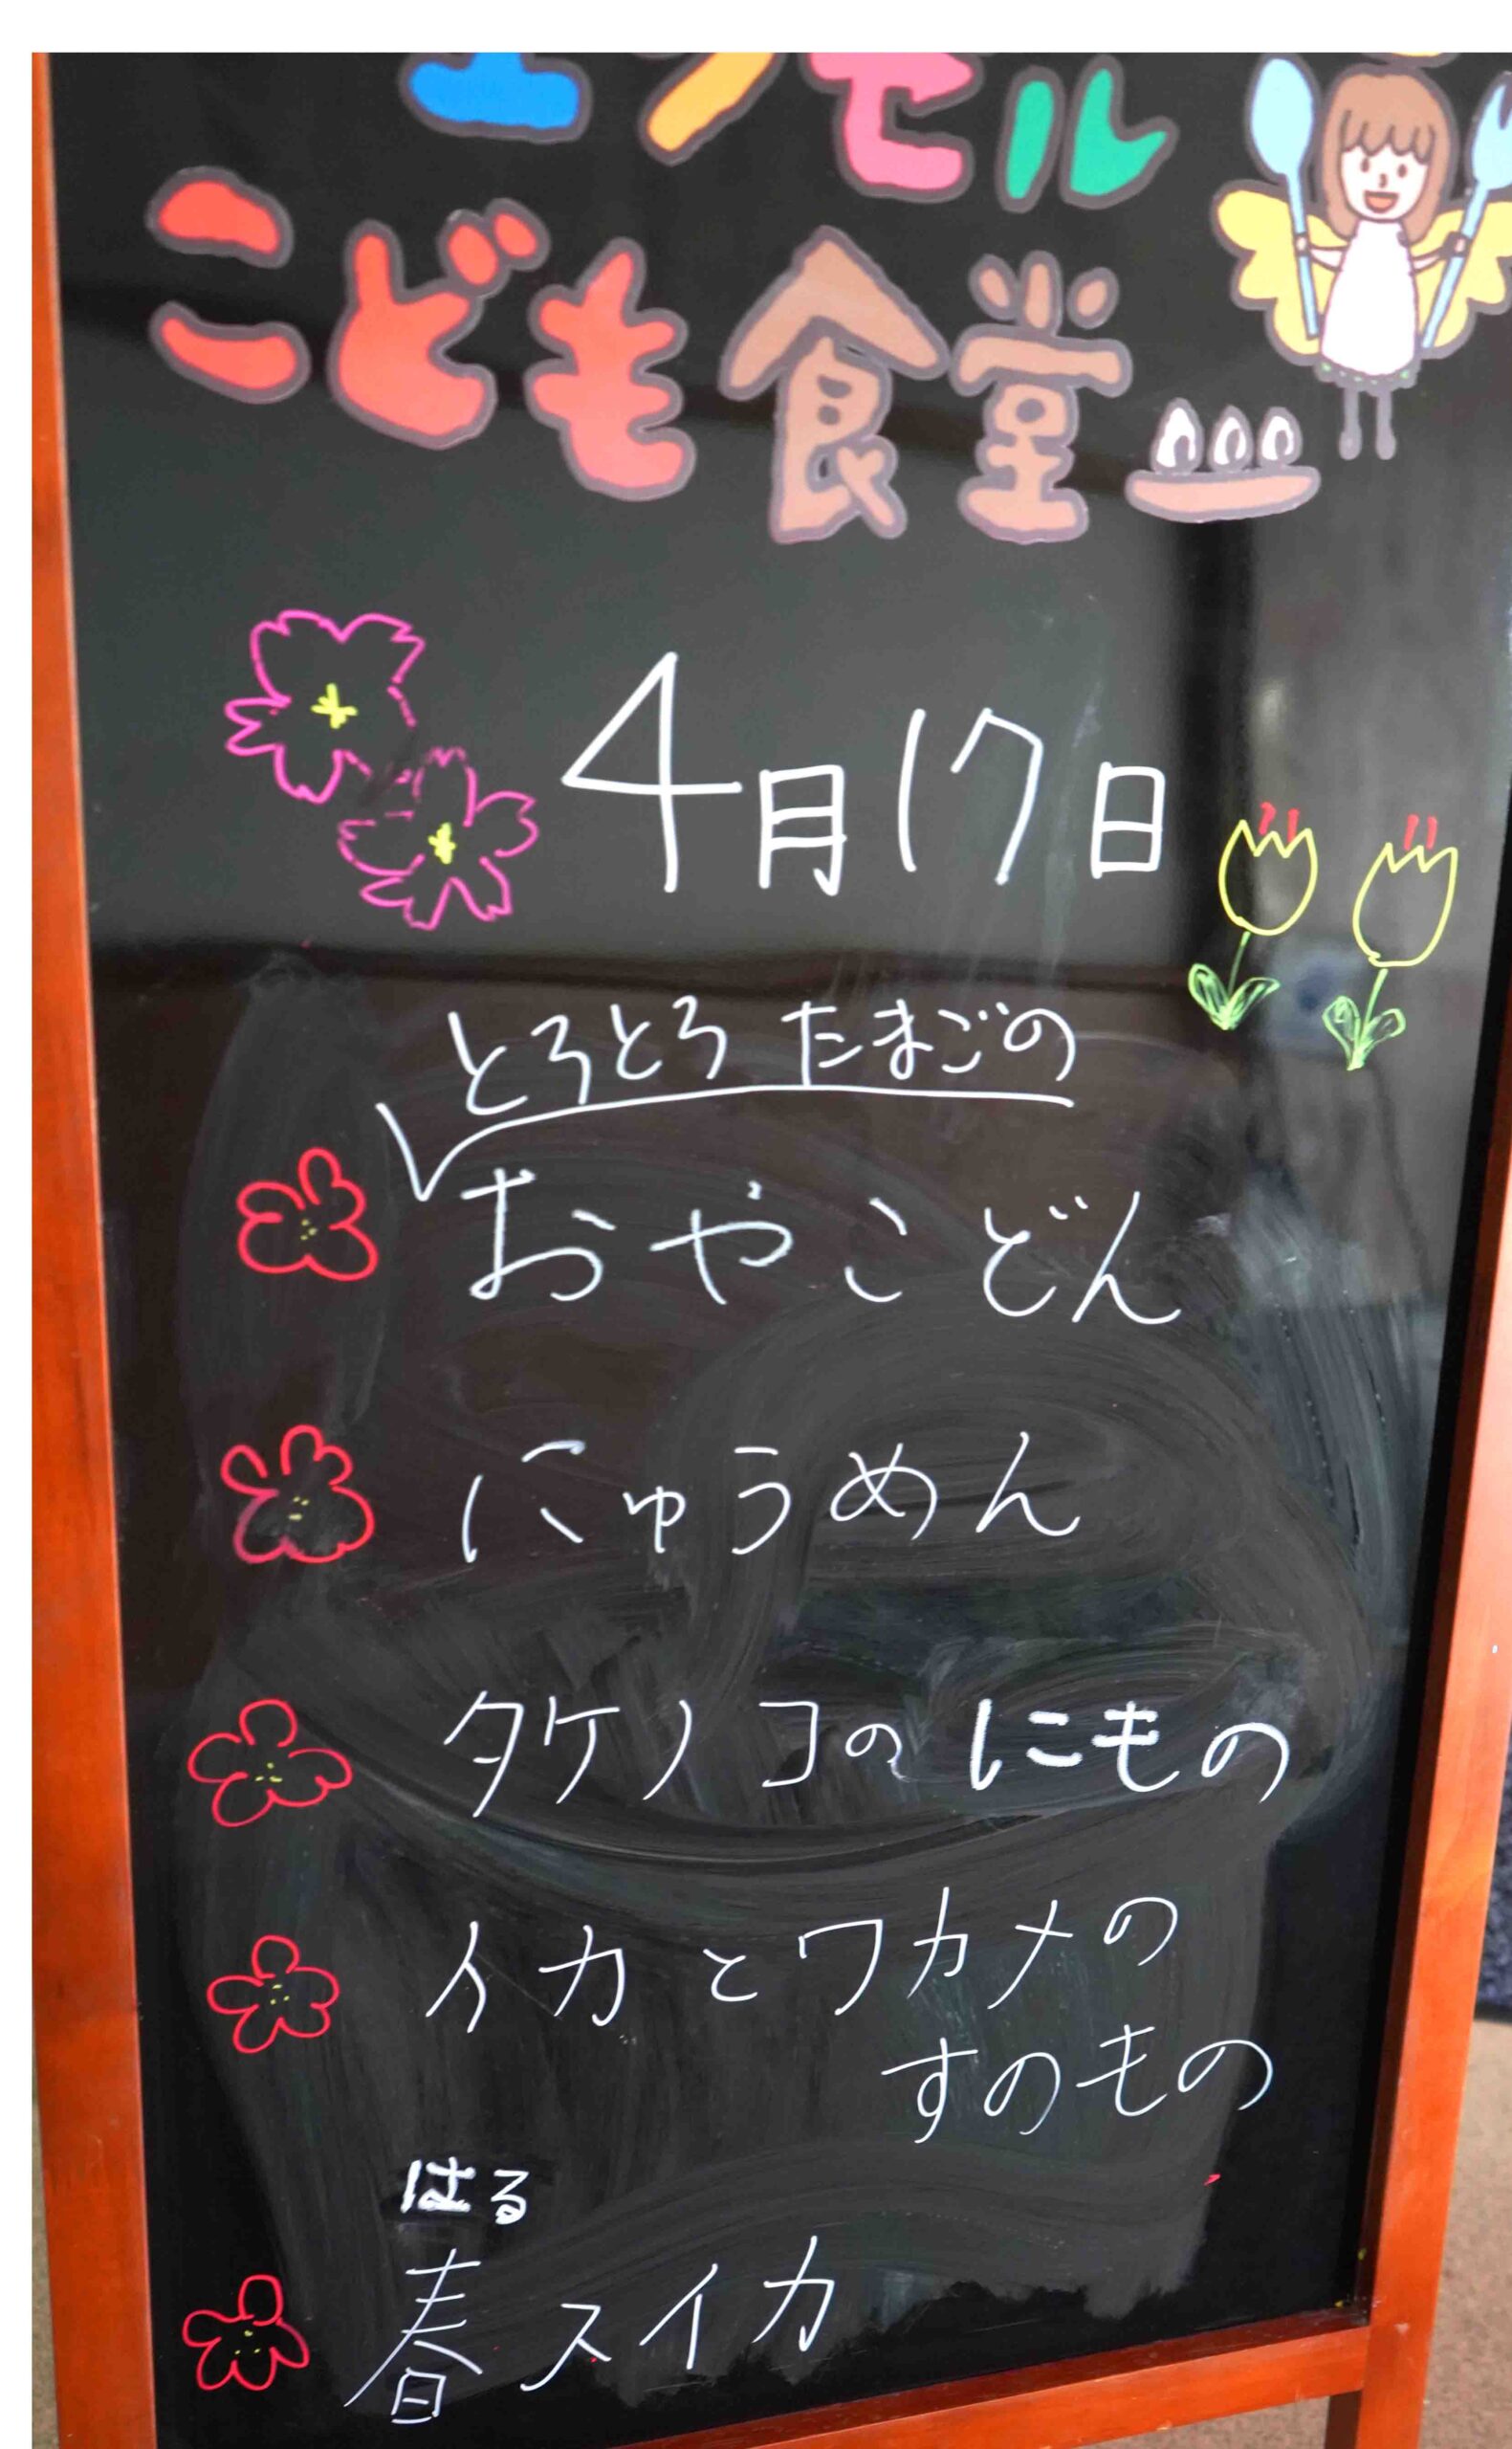 エンゼル
こども食堂
4月17日
とろとろ たまごの
おやこどん
にゅうめん
タケノコの にもの
イカとワカメの
すのもの
はる
春スイカ